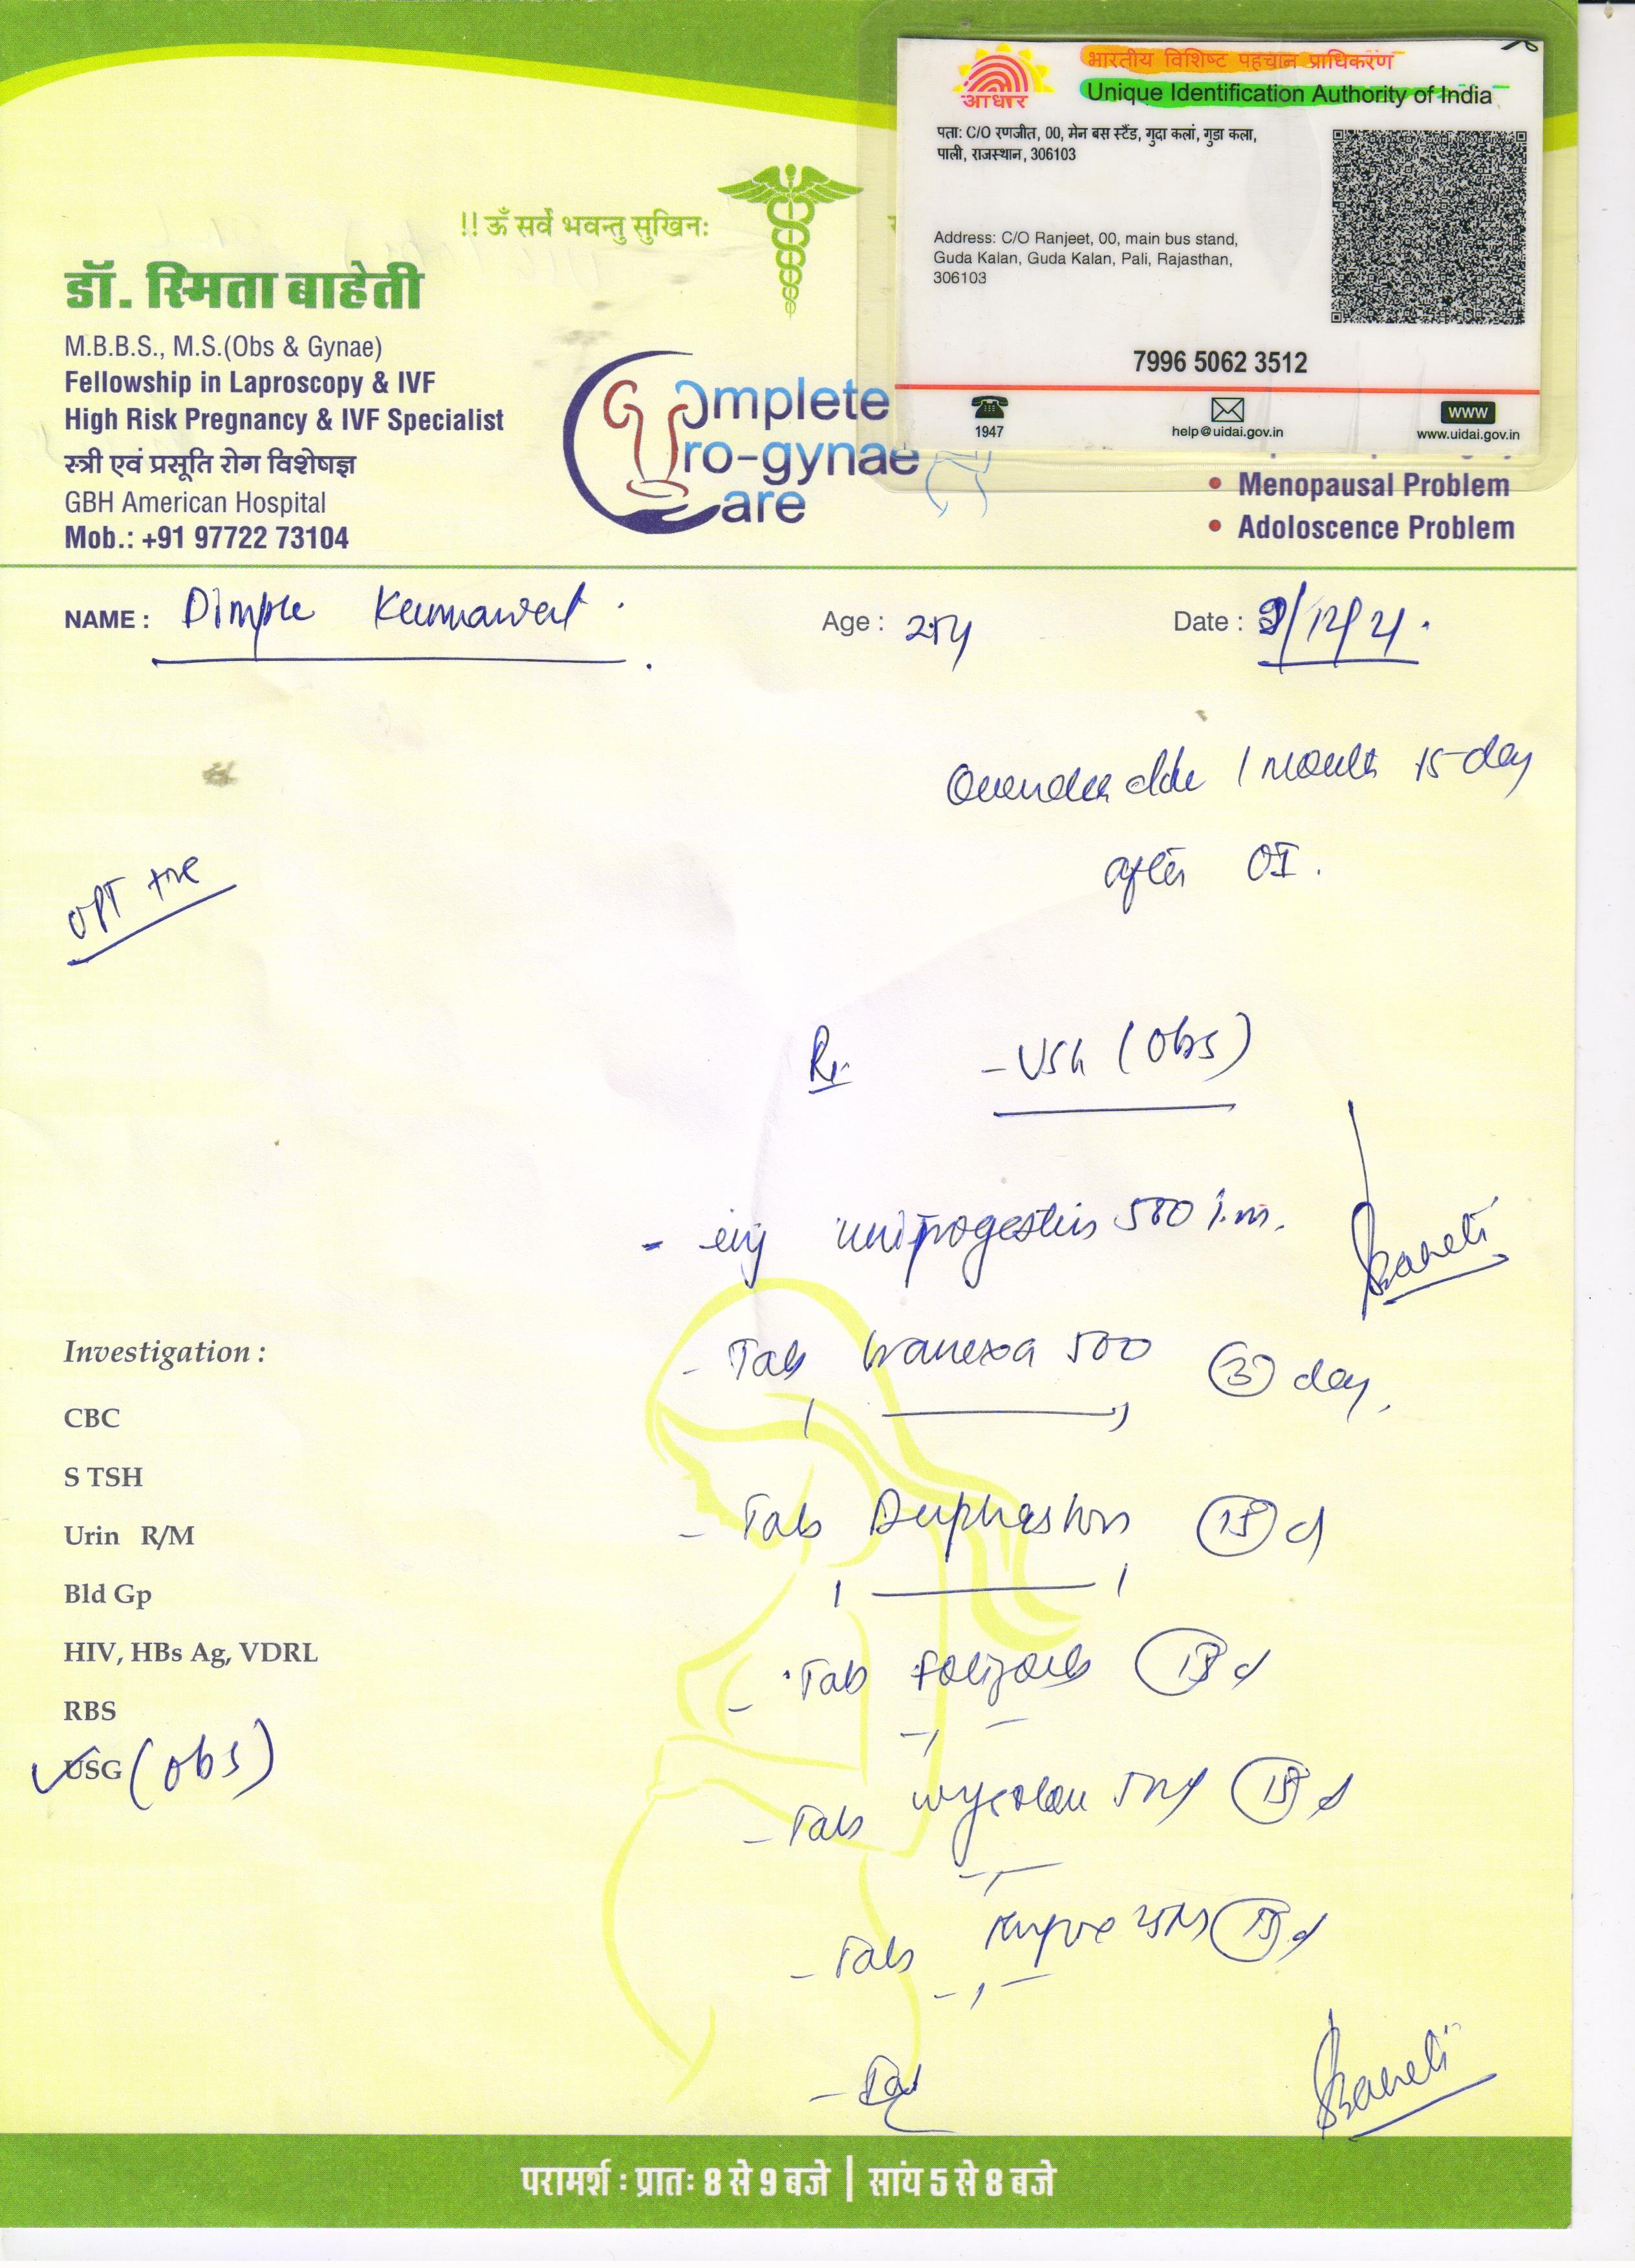 भारतीय विशिष्ट पहचान प्राधिकरण
Unique Identification Authority of India
आधार
पता: C/O रणजीत, 00, मेन बस स्टैंड, गुदा कलां, गुडा कला,
पाली, राजस्थान, 306103
Address: C/O Ranjeet, 00, main bus stand,
Guda Kalan, Guda Kalan, Pali, Rajasthan,
306103
7996 5062 3512
1947
help@uidai.gov.in
www
www.uidai.gov.in
!! ॐ सर्वे भवन्तु सुखिन:
डॉ. स्मिता बाहेती
M.B.B.S., M.S.(Obs & Gynae)
Fellowship in Laproscopy & IVF
High Risk Pregnancy & IVF Specialist
स्त्री एवं प्रसूति रोग विशेषज्ञ
GBH American Hospital
Mob.: +91 97722 73104
Complete
Uro-gynae
Care
• Menopausal Problem
• Adoloscence Problem
NAME : Dimple Kumawat
Age :
Date : 9/12/21.
1 month 15 day
after OI.
UPT +ve
Rx - USG (Obs)
- inj uniprogestin 500 i.m.
Baheti
- Tab tranexa 500 (3) day
- Tab Duphaston (15) d
- Tab (15) d
- Tab wysolone 5mg (15) d
- Tab (15) d
- Tab
Baheti
Investigation :
CBC
S TSH
Urin R/M
Bld Gp
HIV, HBs Ag, VDRL
RBS
USG (obs)
परामर्श : प्रातः 8 से 9 बजे | सांय 5 से 8 बजे